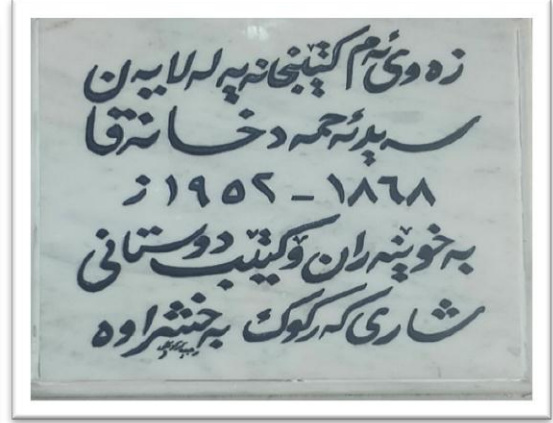 زەوی ئەم کتێبخانەیە لەلایەن
سەید ئەحمەد خانەقا
١٨٦٨ - ١٩٥٢ ز
بەخوێنەران و کتێب دوستانی
شاری کەرکوک بەخشراوە